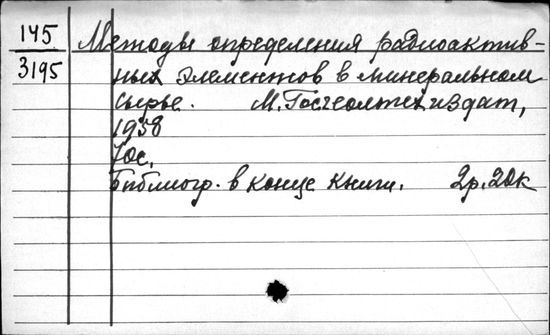 145
3195
Методы определения радиоактив-
ных элементов в минеральном
сырье. М. Госгеолтехиздат,
1958
70с.
Библиогр. в конце книги. 2р.20к